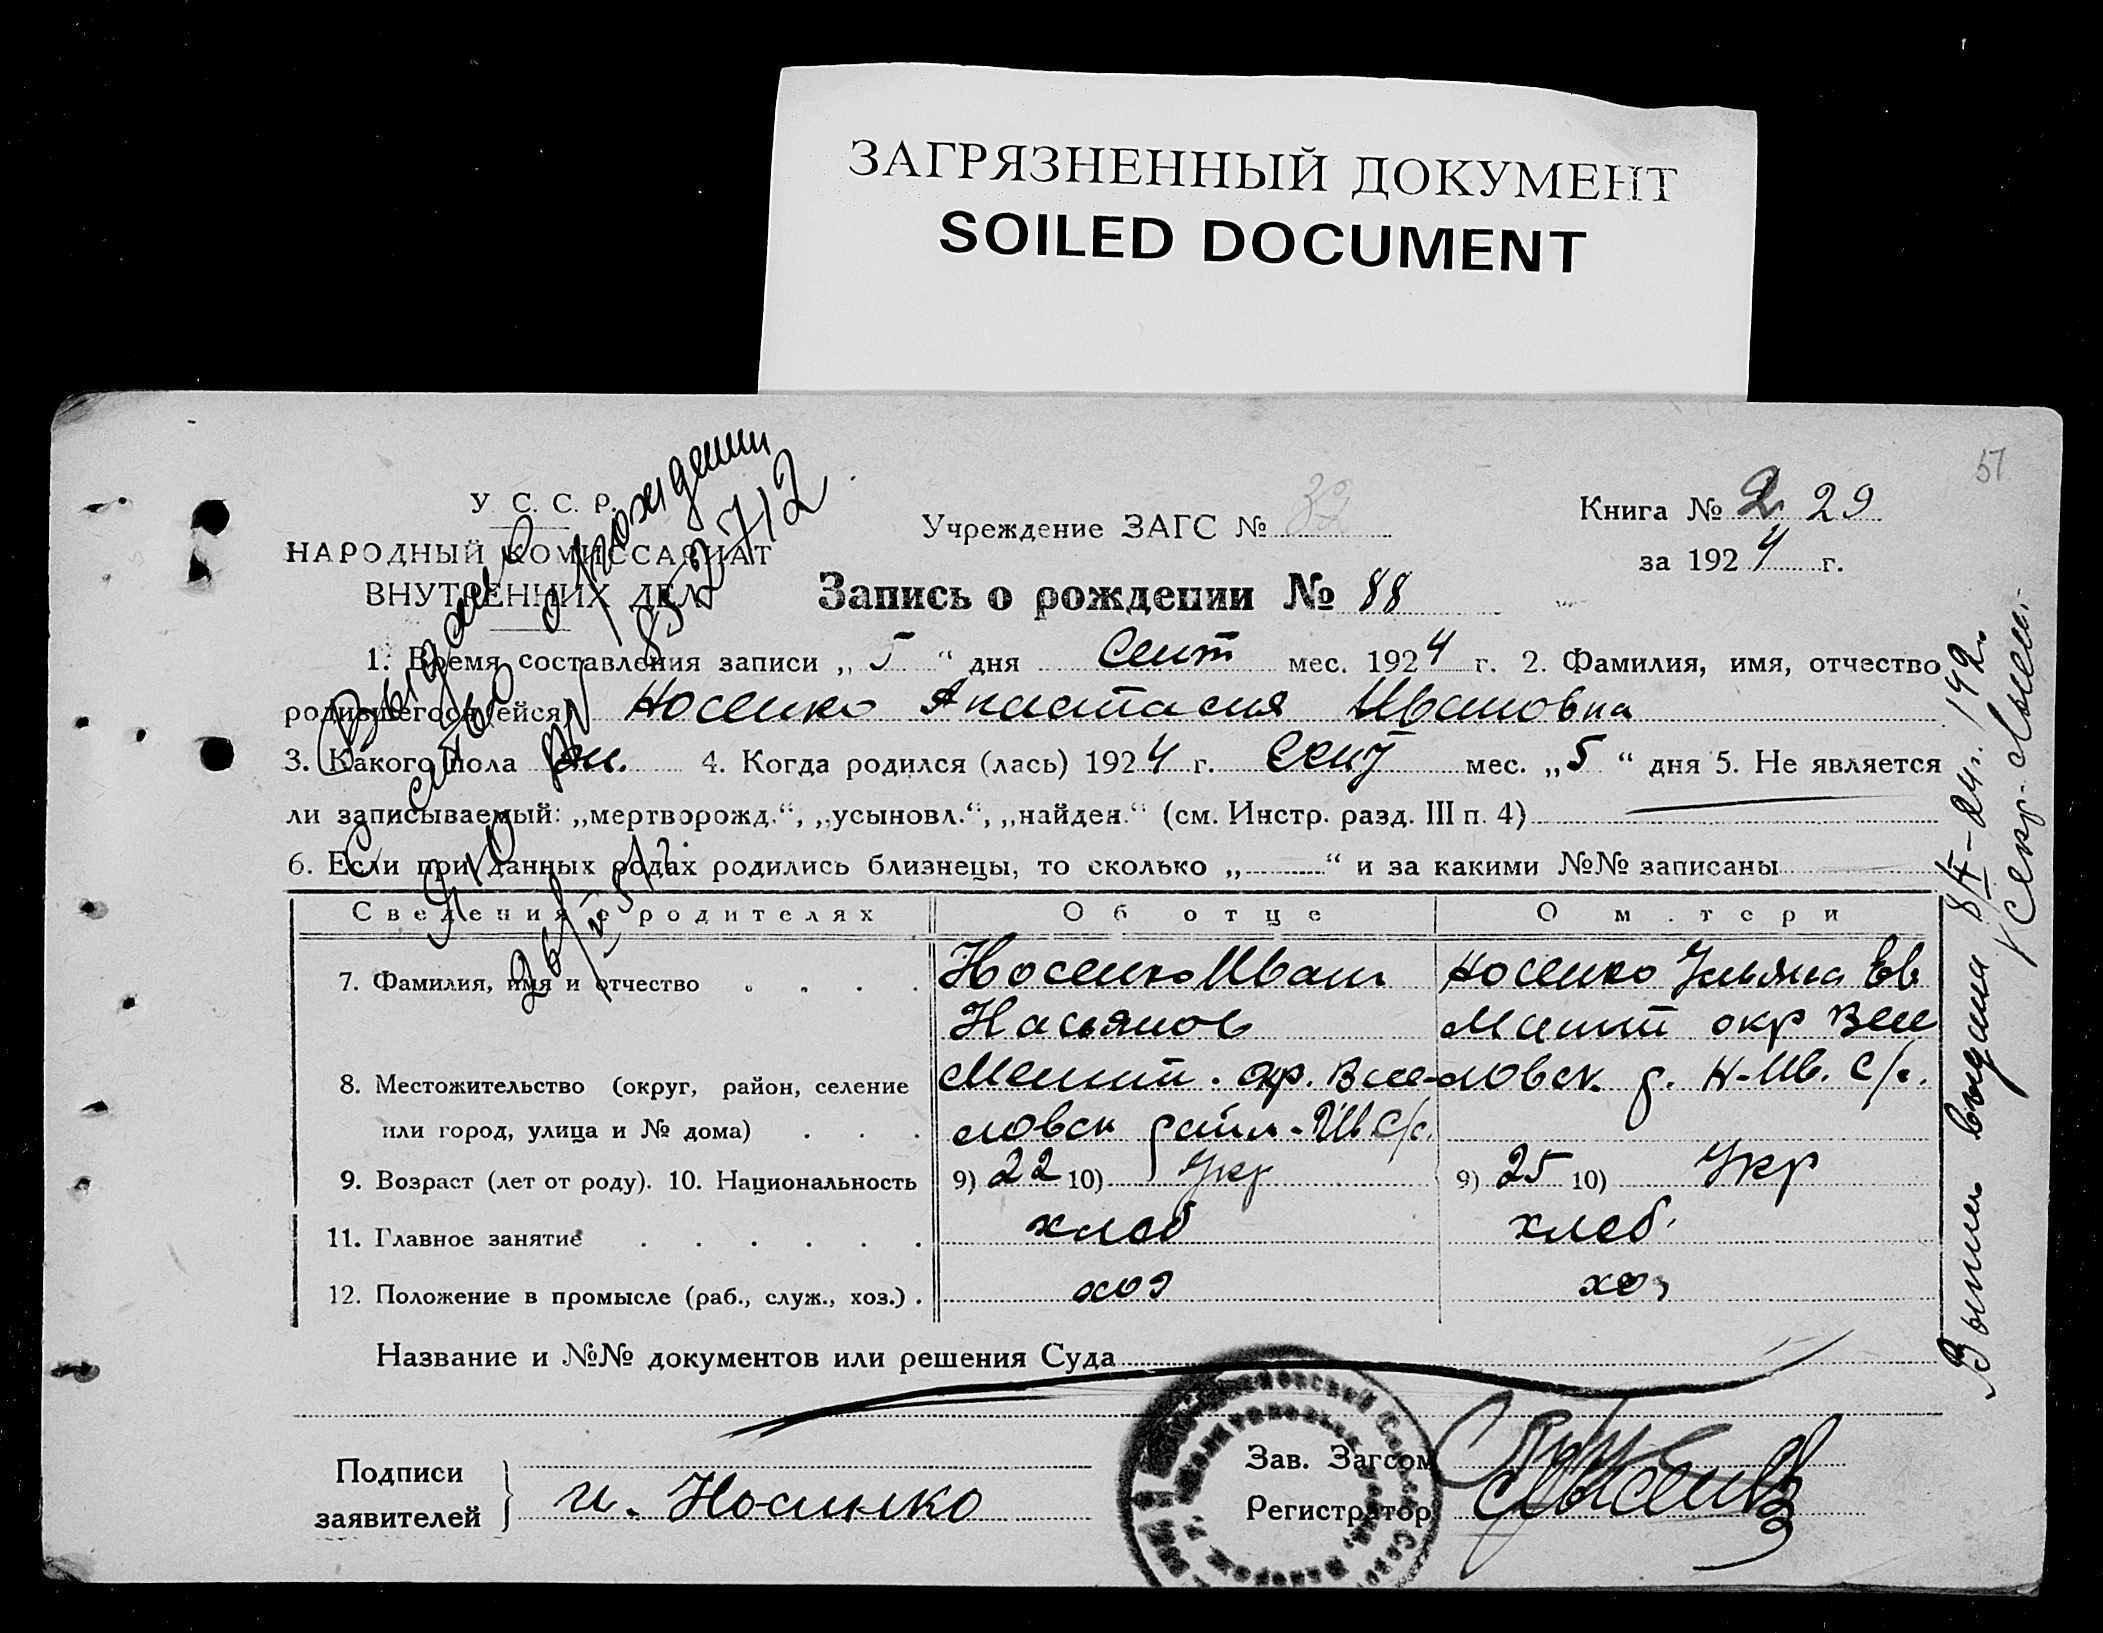 ЗАГРЯЗНЕННЫЙ ДОКУМЕНТ
SOILED DOCUMENT
51
У С. С. Р.
НАРОДНЫЙ КОМИССАРИАТ
ВНУТРЕННИХ ДЕЛ
Учреждение ЗАГС № 32
Книга № 2 29
за 1924 г.
Запись о рождении № 88
1. Время составления записи „ 5 “ дня Сент мес. 1924 г. 2. Фамилия, имя, отчество
родившегося (ейся) Носенко Анастасия Ивановна
3. Какого пола жен. 4. Когда родился (лась) 1924 г. Сент мес. „ 5 “ дня 5. Не является
ли записываемый: „мертворожд.“, „усыновл.“, „найден.“ (см. Инстр. разд. III п. 4)
6. Если при данных родах родились близнецы, то сколько „ “ и за какими №№ записаны
Сведения о родителях Об отце О м.тери
7. Фамилия, имя и отчество Носенко Иван Носенко Ульяна Ев
Касьянов Мелит окр Весе
8. Местожительство (округ, район, селение Мелит. окр. Весе-ловск р. Н-Ив. С/с.
или город, улица и № дома) ловск
9. Возраст (лет от роду). 10. Национальность 9) 22 10) Укр 9) 25 10) Укр
11. Главное занятие хлеб хлеб.
12. Положение в промысле (раб., служ., хоз.) хоз хоз
Название и №№ документов или решения Суда
Подписи
заявителей
и. Носинко
Зав. Загсом
Регистратор
Выдано о рождении
26/